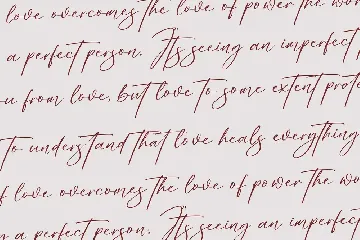 love overcomes the love of power the wor
a perfect person. Its seeing an imperfect p
u from love, but love to some extent prote
to understand that love heals everything
f love overcomes the love of power the wo
n a perfect person. Its seeing an imperfect